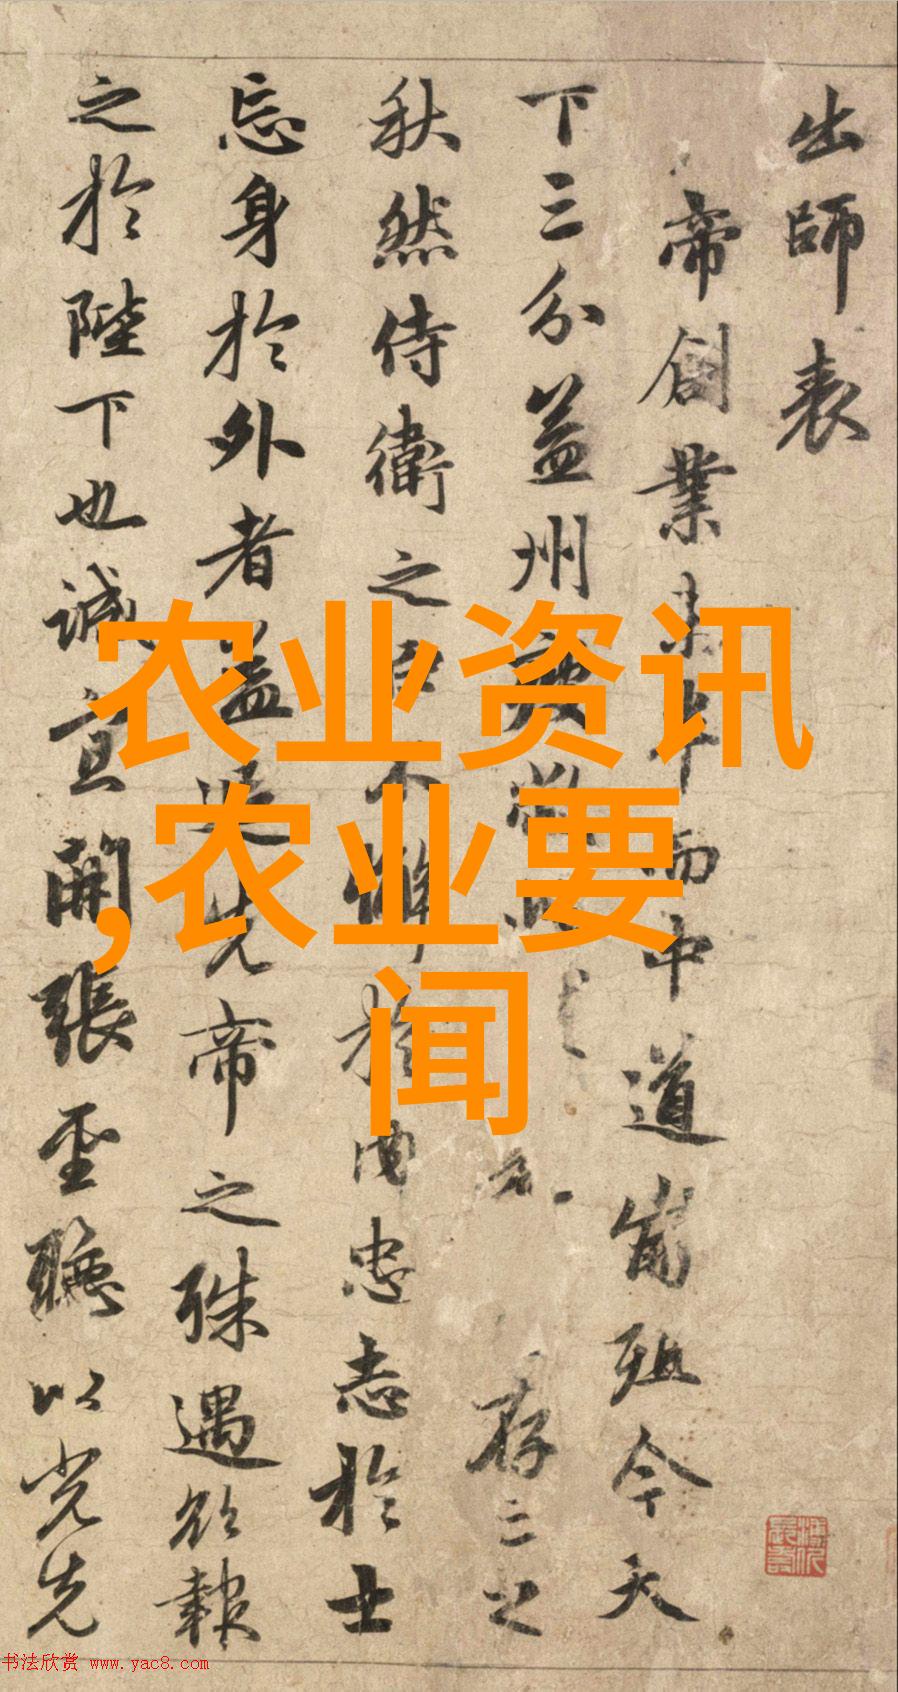 出師表
帝創業未半而中道崩殂今天
下三分益州疲弊此 存亡之
秋然侍衛之臣不懈於内忠志於士
忘身於外者盖追先帝之殊遇欲報
之於陛下也誠宜開張聖聽以光先
农业资讯
,农业要
闻
书法欣赏 www.yac8.com